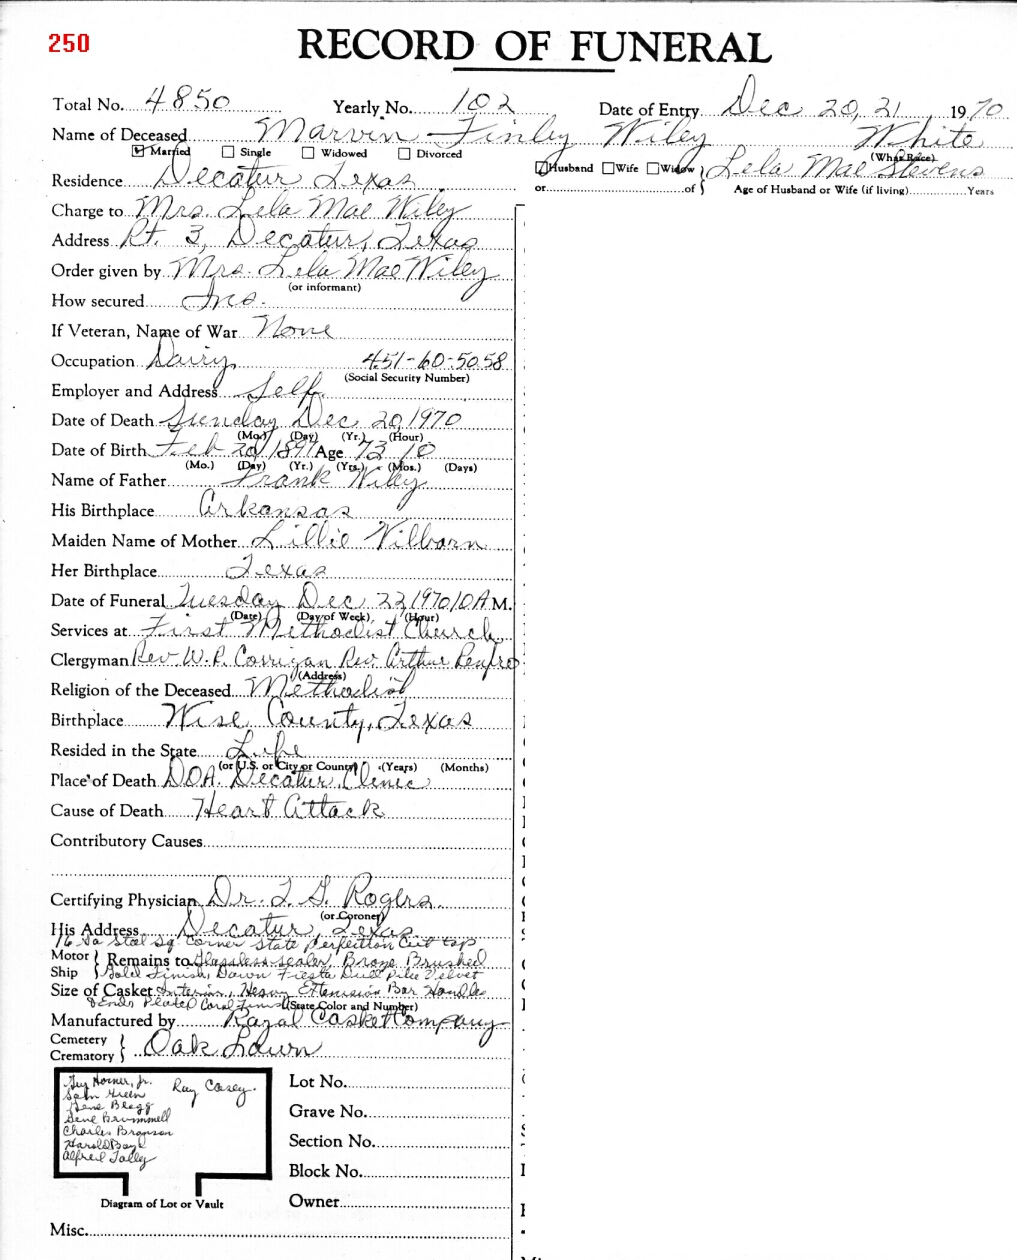 250
RECORD OF FUNERAL
Total No. 4850 Yearly No. 102 Date of Entry Dec 20, 21 1970
Name of Deceased Marvin Finley Wiley White
Married Single Widowed Divorced (What Race)
Husband Wife Widow Lela Mae Stevens
Residence Decatur Texas or of Age of Husband or Wife (if living) Years
Charge to Mrs. Lela Mae Wiley
Address Rt. 3, Decatur, Texas
Order given by Mrs. Lela Mae Wiley
(or informant)
How secured Ins.
If Veteran, Name of War None
Occupation Dairy 451-60-5058
(Social Security Number)
Employer and Address Self
Date of Death Sunday Dec 20, 1970
(Mo.) (Day) (Yr.) (Hour)
Date of Birth Feb 20, 1897 Age 73 10
(Mo.) (Day) (Yr.) (Yrs.) (Mos.) (Days)
Name of Father Frank Wiley
His Birthplace Arkansas
Maiden Name of Mother Lillie Wilborn
Her Birthplace Texas
Date of Funeral Tuesday Dec 22, 1970 10 A M.
(Date) (Day of Week) (Hour)
Services at First Methodist Church
Clergyman Rev. W.P. Corrigan Rev. Arthur Renfro
(Address)
Religion of the Deceased Methodist
Birthplace Wise County, Texas
Resided in the State Life
(or U.S. or City or County) (Years) (Months)
Place of Death DOA. Decatur Clinic
Cause of Death Heart Attack
Contributory Causes
Certifying Physician Dr. T. G. Rogers
(or Coroner)
His Address Decatur, Texas
16 Ga Steel Sq. Corner State Perfection Cut top
Motor Ship Remains to Glassless sealer, Bronze Brushed
Gold Finish, Dawn Fiesta Dull Pile Velvet
Size of Casket Interior, Heavy Extension Bar Handle
& Ends Plated Coral Finish (State Color and Number)
Manufactured by Casket Company
Cemetery Crematory Oak Lawn
Guy Horner, Jr. Ray Casey.
Green
Gene Blagg
Gene Brummell
Charles Branson
Harold Boyd
Alfred Tally
Lot No.
Grave No.
Section No.
Block No.
Diagram of Lot or Vault Owner
Misc.